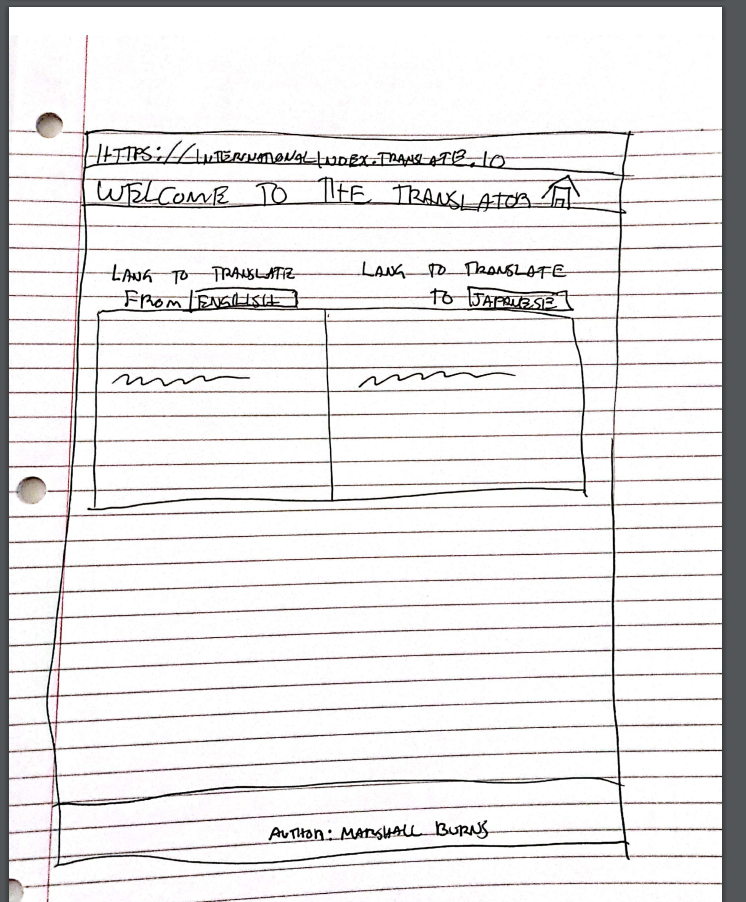 HTTPS://INTERNATIONALINDEX.TRANSLATE.IO
WELCOME TO THE TRANSLATOR
LANG TO TRANSLATE
FROM ENGLISH
LANG TO TRANSLATE
TO JAPANESE
AUTHOR: MARSHALL BURNS